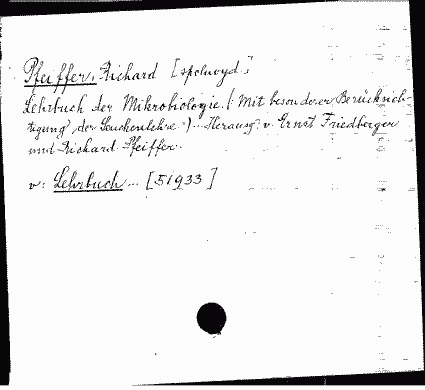 Pfeiffer, Richard [spoluvyd.]
Lehrbuch der Mikrobiologie. (Mit besonderer Berücksich-
tigung der Seuchenlehre.) ... Herausg. v. Ernst Friedberger
und Richard Pfeiffer.
v: Lehrbuch ... [51933]